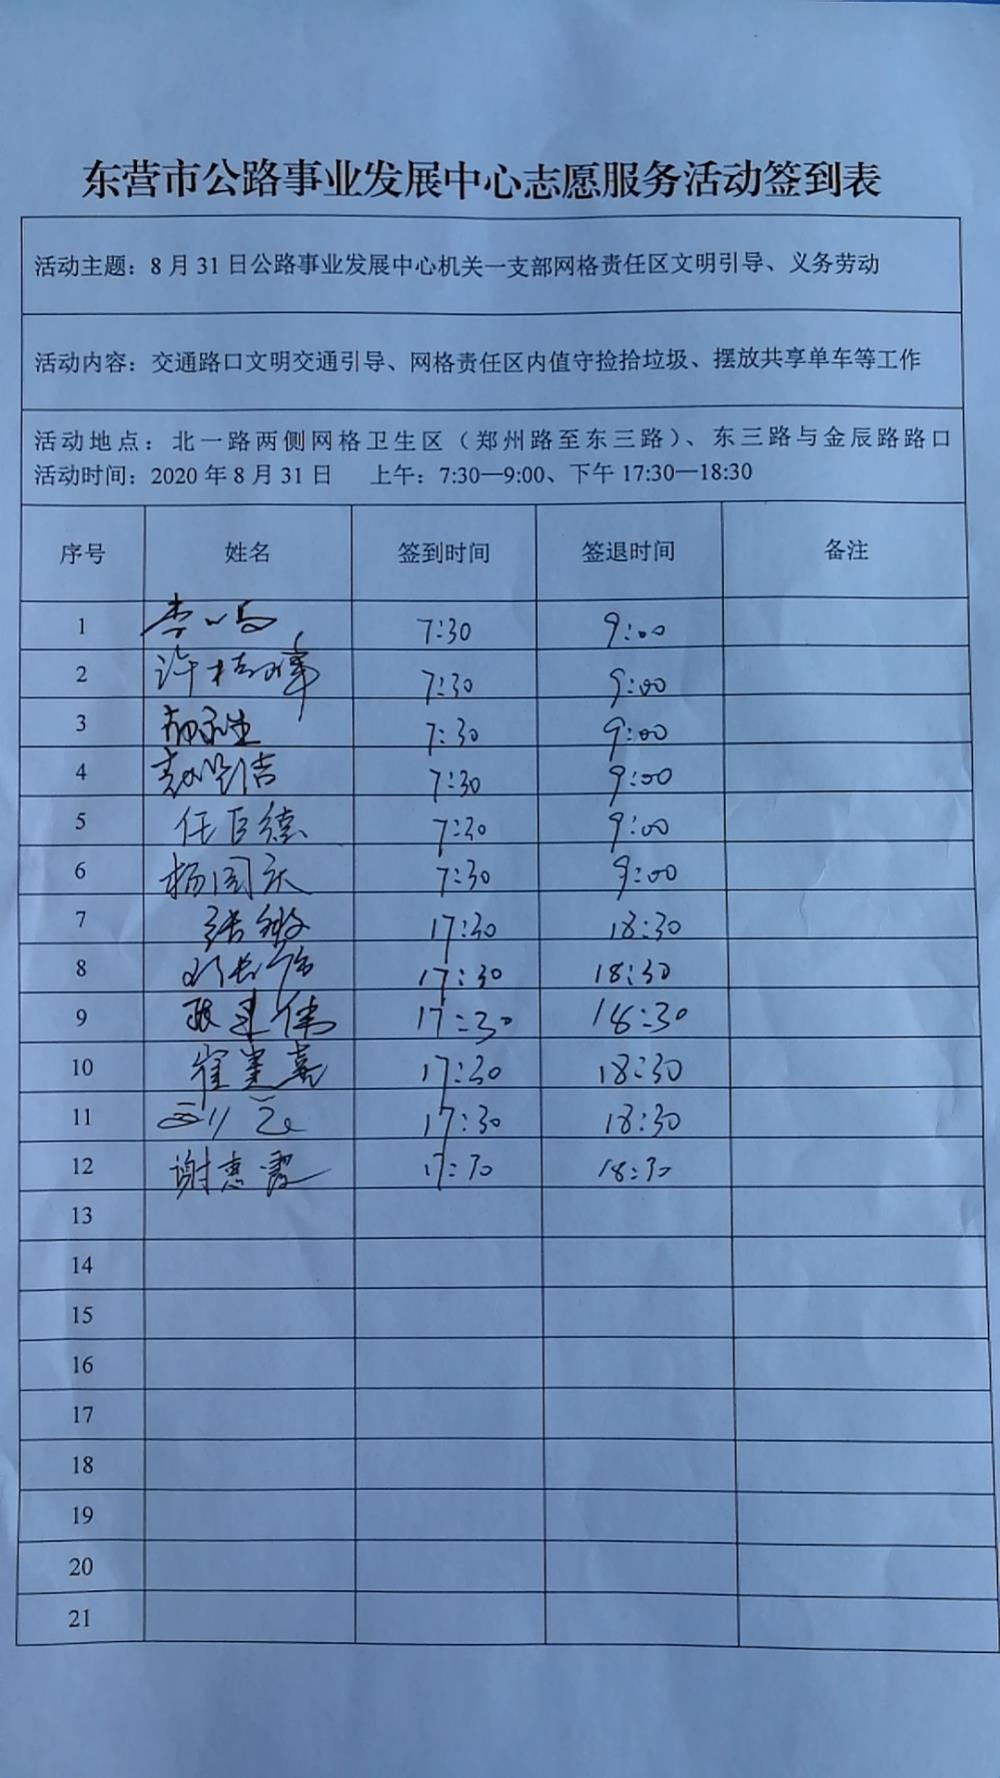 东营市公路事业发展中心志愿服务活动签到表
活动主题：8月31日公路事业发展中心机关一支部网格责任区文明引导、义务劳动
活动内容：交通路口文明交通引导、网格责任区内值守捡拾垃圾、摆放共享单车等工作
活动地点：北一路两侧网格卫生区（郑州路至东三路）、东三路与金辰路路口
活动时间：2020年8月31日 上午：7:30—9:00、下午17:30—18:30
序号 姓名 签到时间 签退时间 备注
1 7:30 9:00
2 7:30 9:00
3 7:30 9:00
4 7:30 9:00
5 任巨德 7:30 9:00
6 杨国庆 7:30 9:00
7 张敏 17:30 18:30
8 17:30 18:30
9 17:30 18:30
10 17:30 18:30
11 17:30 18:30
12 谢惠霞 17:30 18:30
13
14
15
16
17
18
19
20
21